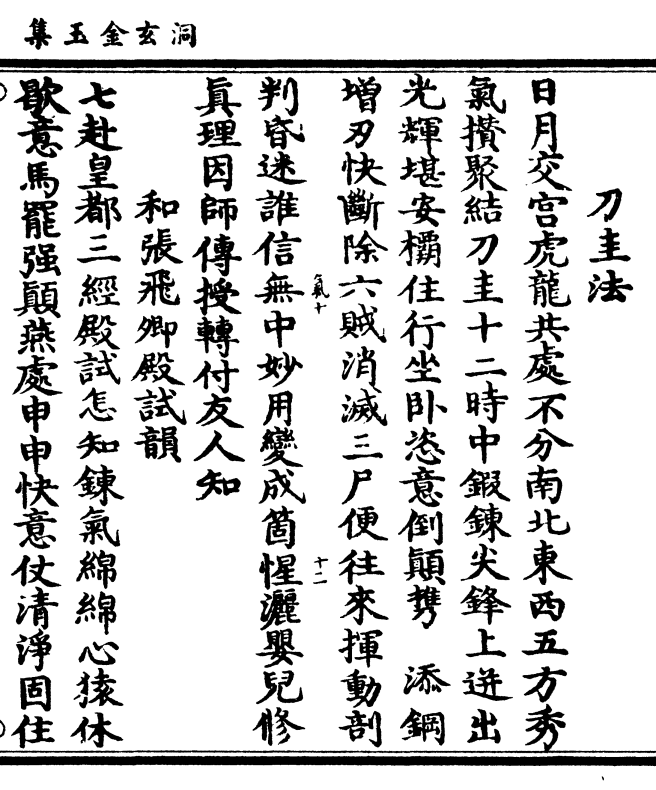 洞玄金玉集
刀圭法
日月交宫虎龍共處不分南北東西五方秀
氣攅聚結刀圭十二時中鍜鍊尖鋒上迸出
光輝堪安欛住行坐卧恣意倒顛携　添鋼
增刃快斷除六賊消滅三尸便往來揮動剖
判昏迷誰信無中妙用變成箇惺灑嬰兒修
眞理因師傳授轉付友人知
和張飛卿殿試韻
七赴皇都三經殿試怎知鍊氣綿綿心猿休
歇意馬罷强顛燕處申申快意仗清淨固住
氣十
十二